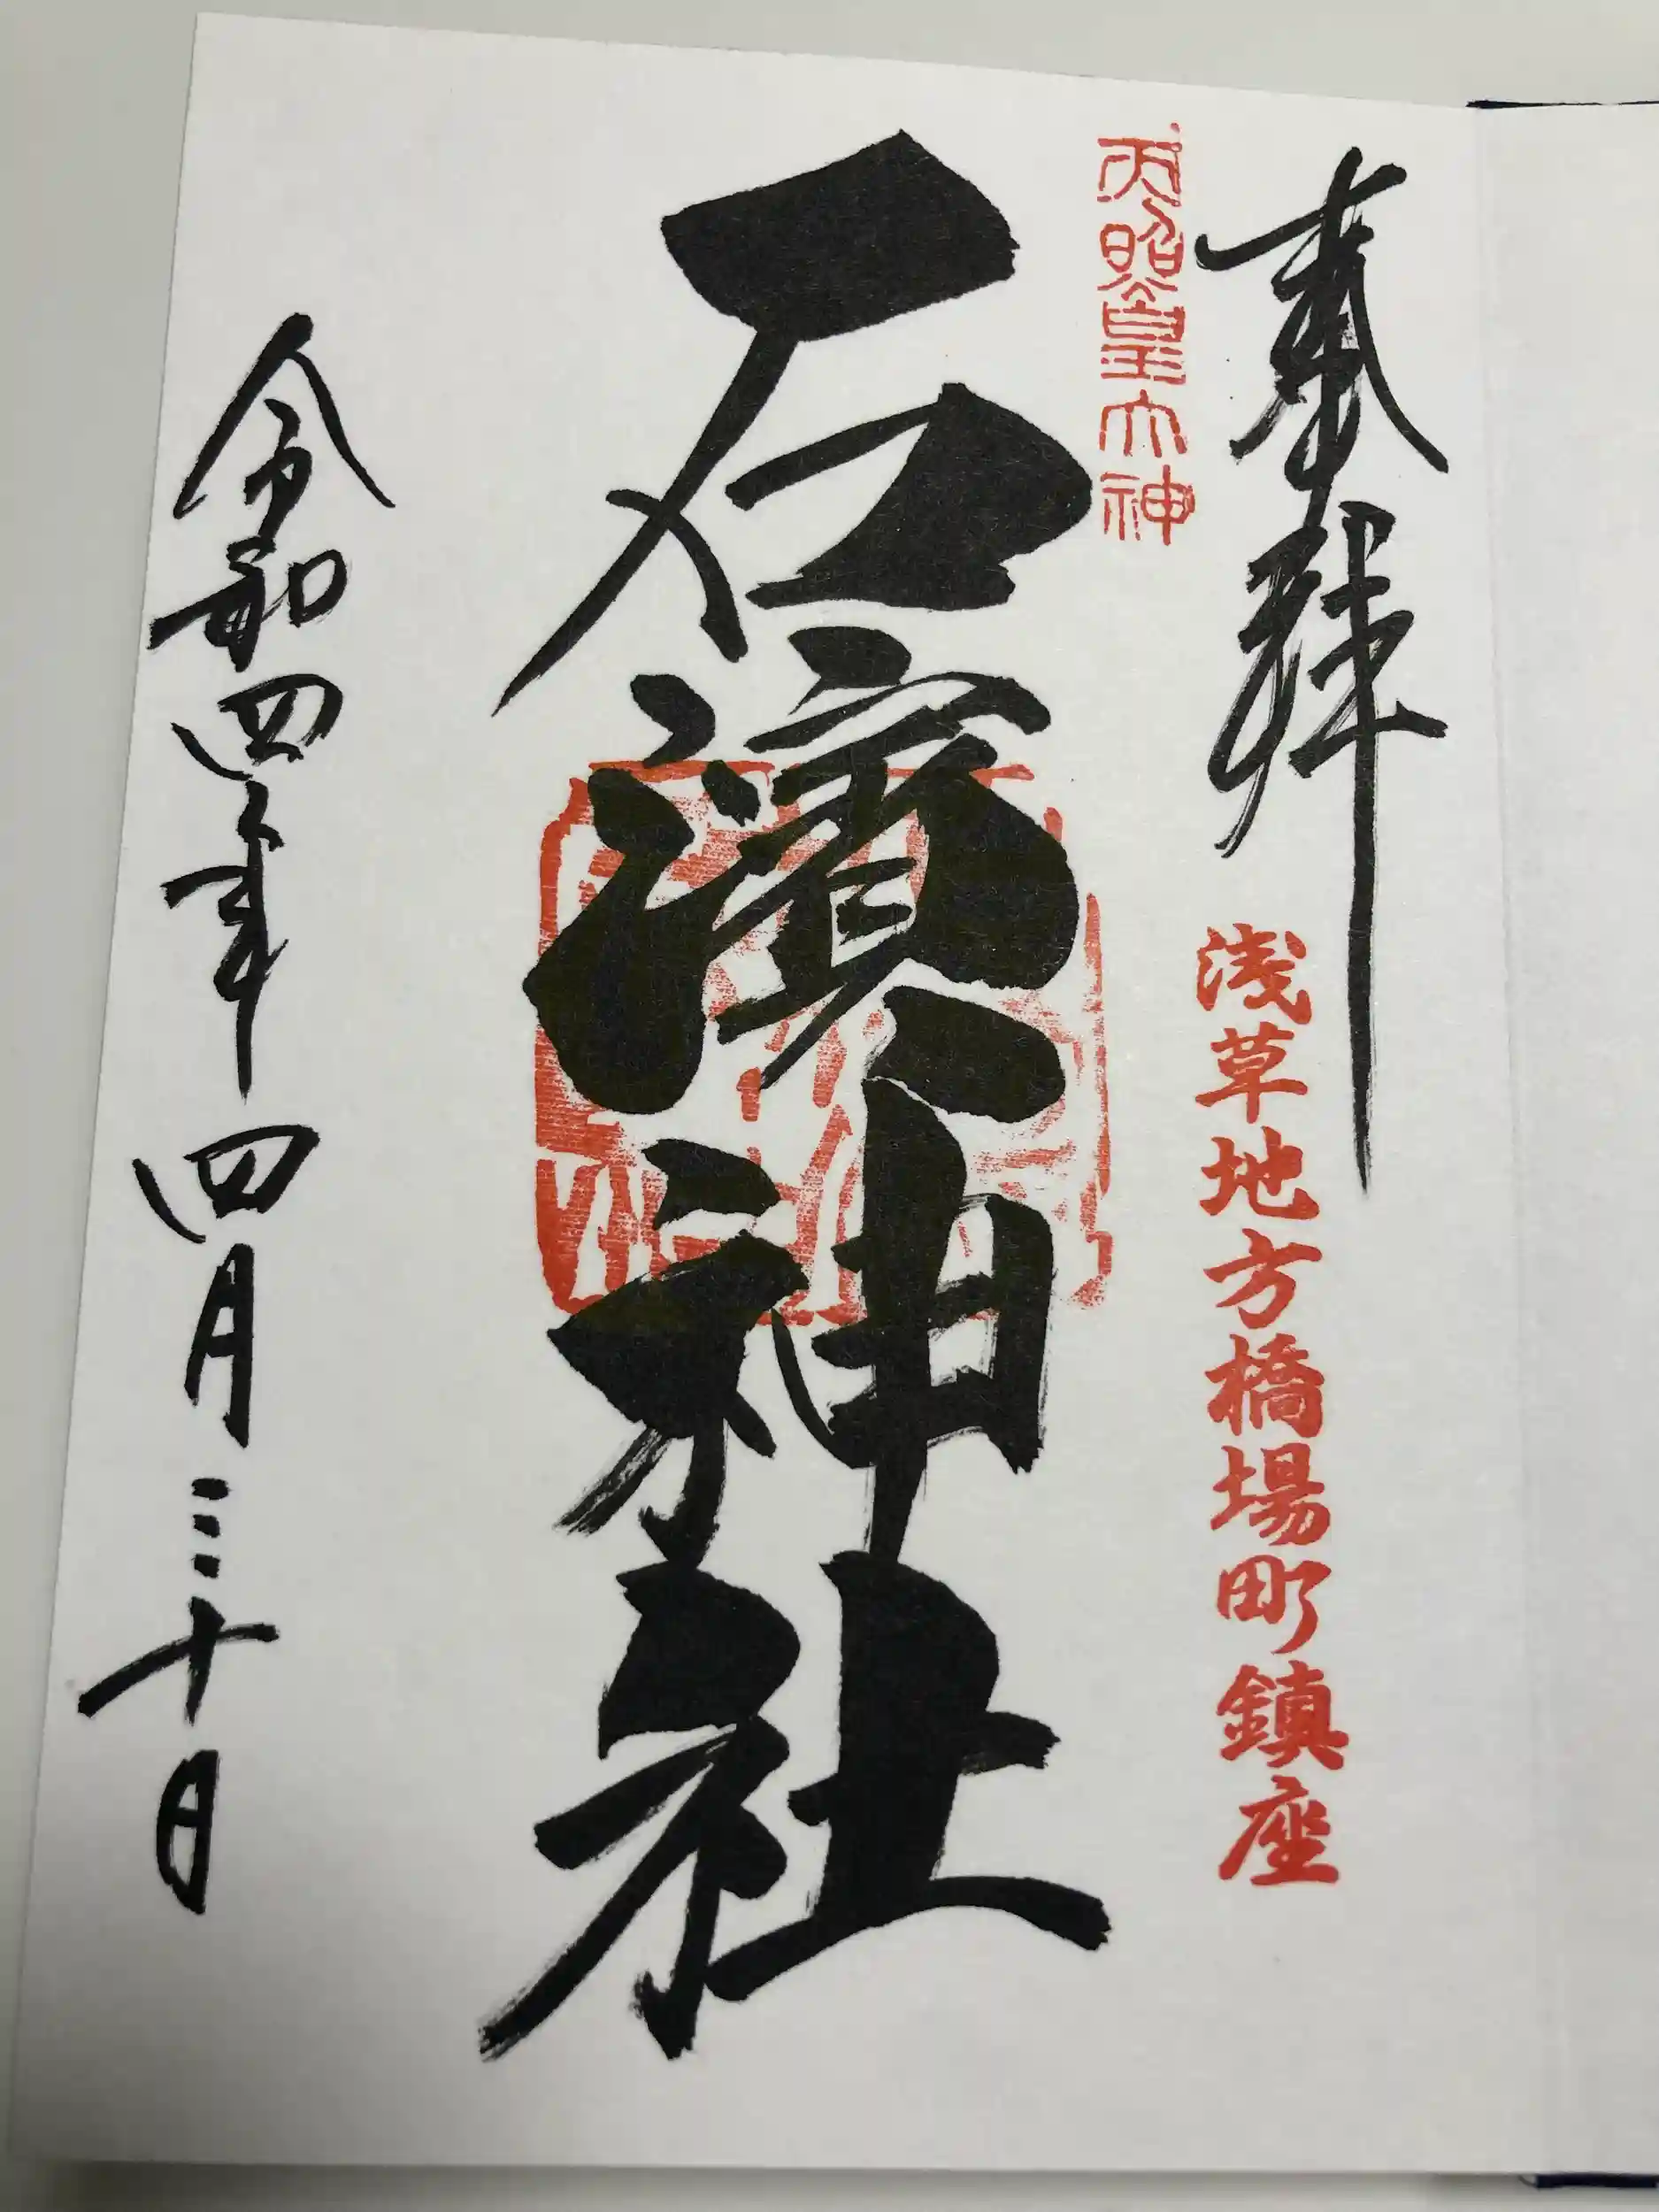 奉拝
浅草地方橋場町鎮座
天照皇大神
石濱神社
令和四年四月三十日